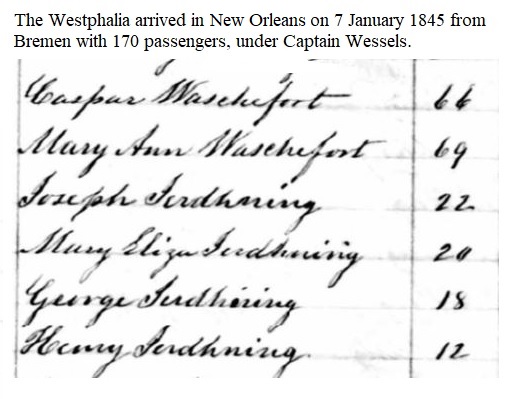 The Westphalia arrived in New Orleans on 7 January 1845 from
Bremen with 170 passengers, under Captain Wessels.
Caspar Waschefort 66
Mary Ann Waschefort 69
Joseph Ferdhning 22
Mary Eliza Ferdhning 20
George Ferdhning 18
Henry Ferdhning 12